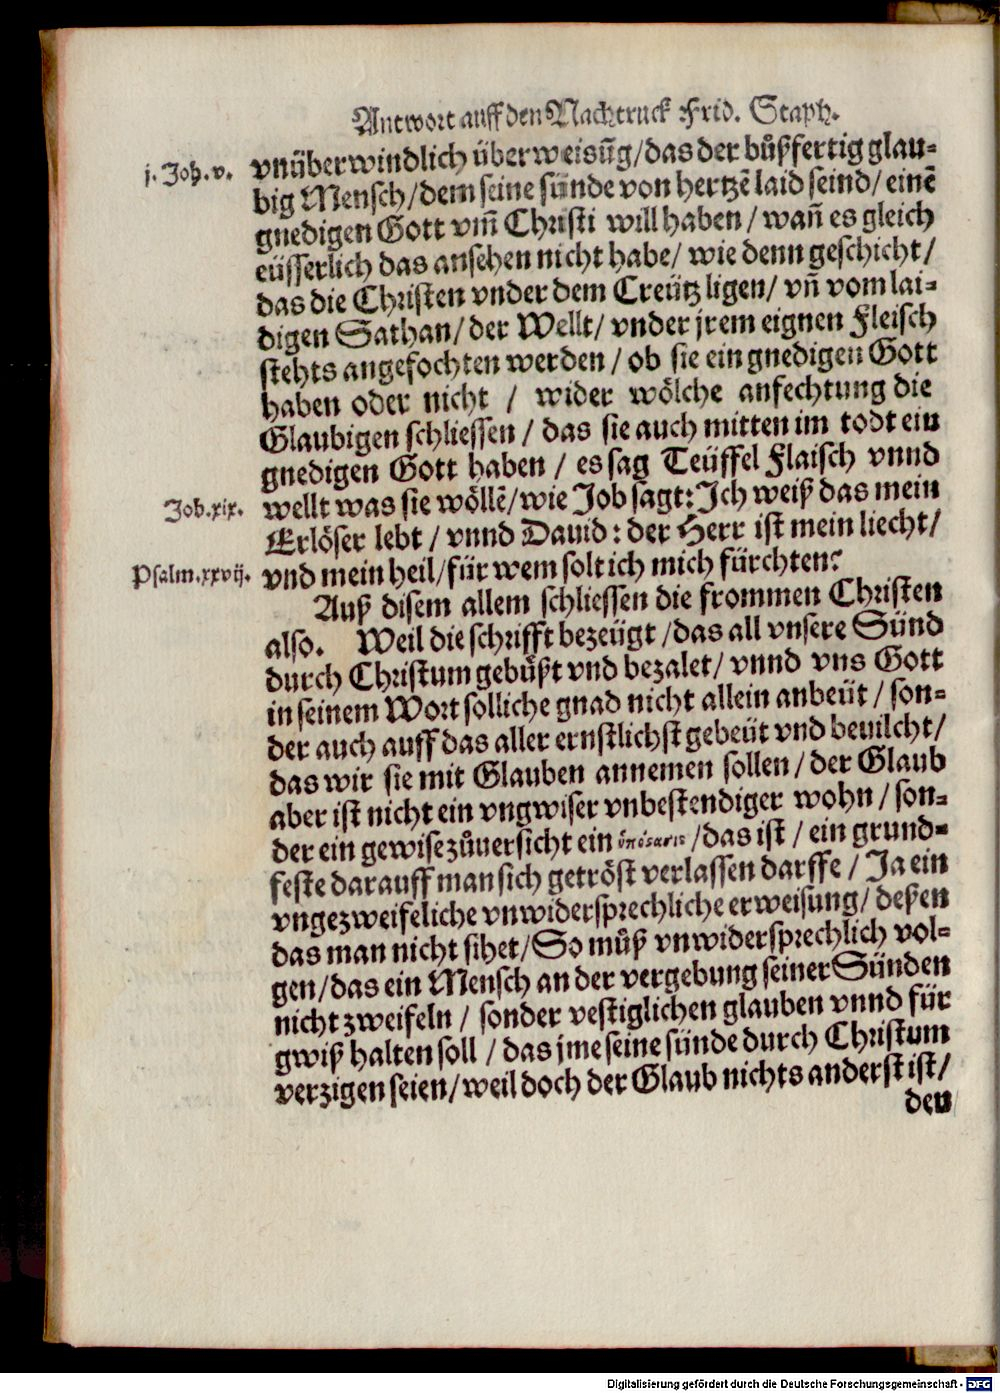 Antwort auff den Nachtruck Frid. Staph.
j. Joh. v.
vnüberwindlich überweisũg/das der bůßfertig glau-
big Mensch/dem seine sünde von hertzẽ laid seind/einẽ
gnedigen Gott vm̃ Christi will haben/wañ es gleich
eüsserlich das ansehen nicht habe/ wie denn geschicht/
das die Christen vnder dem Creütz ligen/ vñ vom lai-
digen Sathan/der Wellt/ vnder jrem eignen Fleisch
stehts angefochten werden/ ob sie ein gnedigen Gott
haben oder nicht / wider wölche anfechtung die
Glaubigen schliessen / das sie auch mitten im todt ein
gnedigen Gott haben / es sag Teüffel Flaisch vnnd
Job.xix.
wellt was sie wöllẽ/wie Job sagt: Ich weiß das mein
Erlöser lebt / vnnd Dauid: der Herr ist mein liecht/
Psalm.xxvij.
vnd mein heil/für wem solt ich mich fürchten?
Auß disem allem schliessen die frommen Christen
also. Weil die schrifft bezeügt/das all vnsere Sünd
durch Christum gebůßt vnd bezalet/ vnnd vns Gott
in seinem Wort solliche gnad nicht allein anbeüt/ son-
der auch auff das aller ernstlichst gebeüt vnd beuilcht/
das wir sie mit Glauben annemen sollen/der Glaub
aber ist nicht ein vngwiser vnbestendiger wohn/ son-
der ein gewise zůuersicht ein /das ist / ein grund-
feste darauff man sich getröst verlassen darffe / Ja ein
vngezweifeliche vnwidersprechliche erweisung/ deßen
das man nicht sihet/So můß vnwidersprechlich vol-
gen/das ein Mensch an der vergebung seiner Sünden
nicht zweifeln / sonder vestiglichen glauben vnnd für
gwiß halten soll / das jme seine sünde durch Christum
verzigen seien/weil doch der Glaub nichts anderst ist/
den
Digitalisierung gefördert durch die Deutsche Forschungsgemeinschaft - DFG